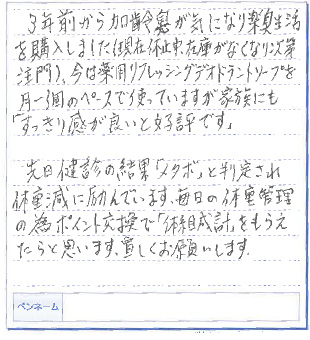 3年前から加齢臭が気になり楽臭生活
を購入しました(現在休止中在庫がなくなり次第
注門)、今は薬用リフレッシングデオドラントソープを
月一個のペースで使っていますが家族にも
「すっきり感が良いと好評です」
先日健診の結果「メタボ」と判定され
体重減に励んでいます。毎日の体重管理
の為ポイント交換で「体組成計」をもらえ
たらと思います。宜しくお願いします。
ペンネーム